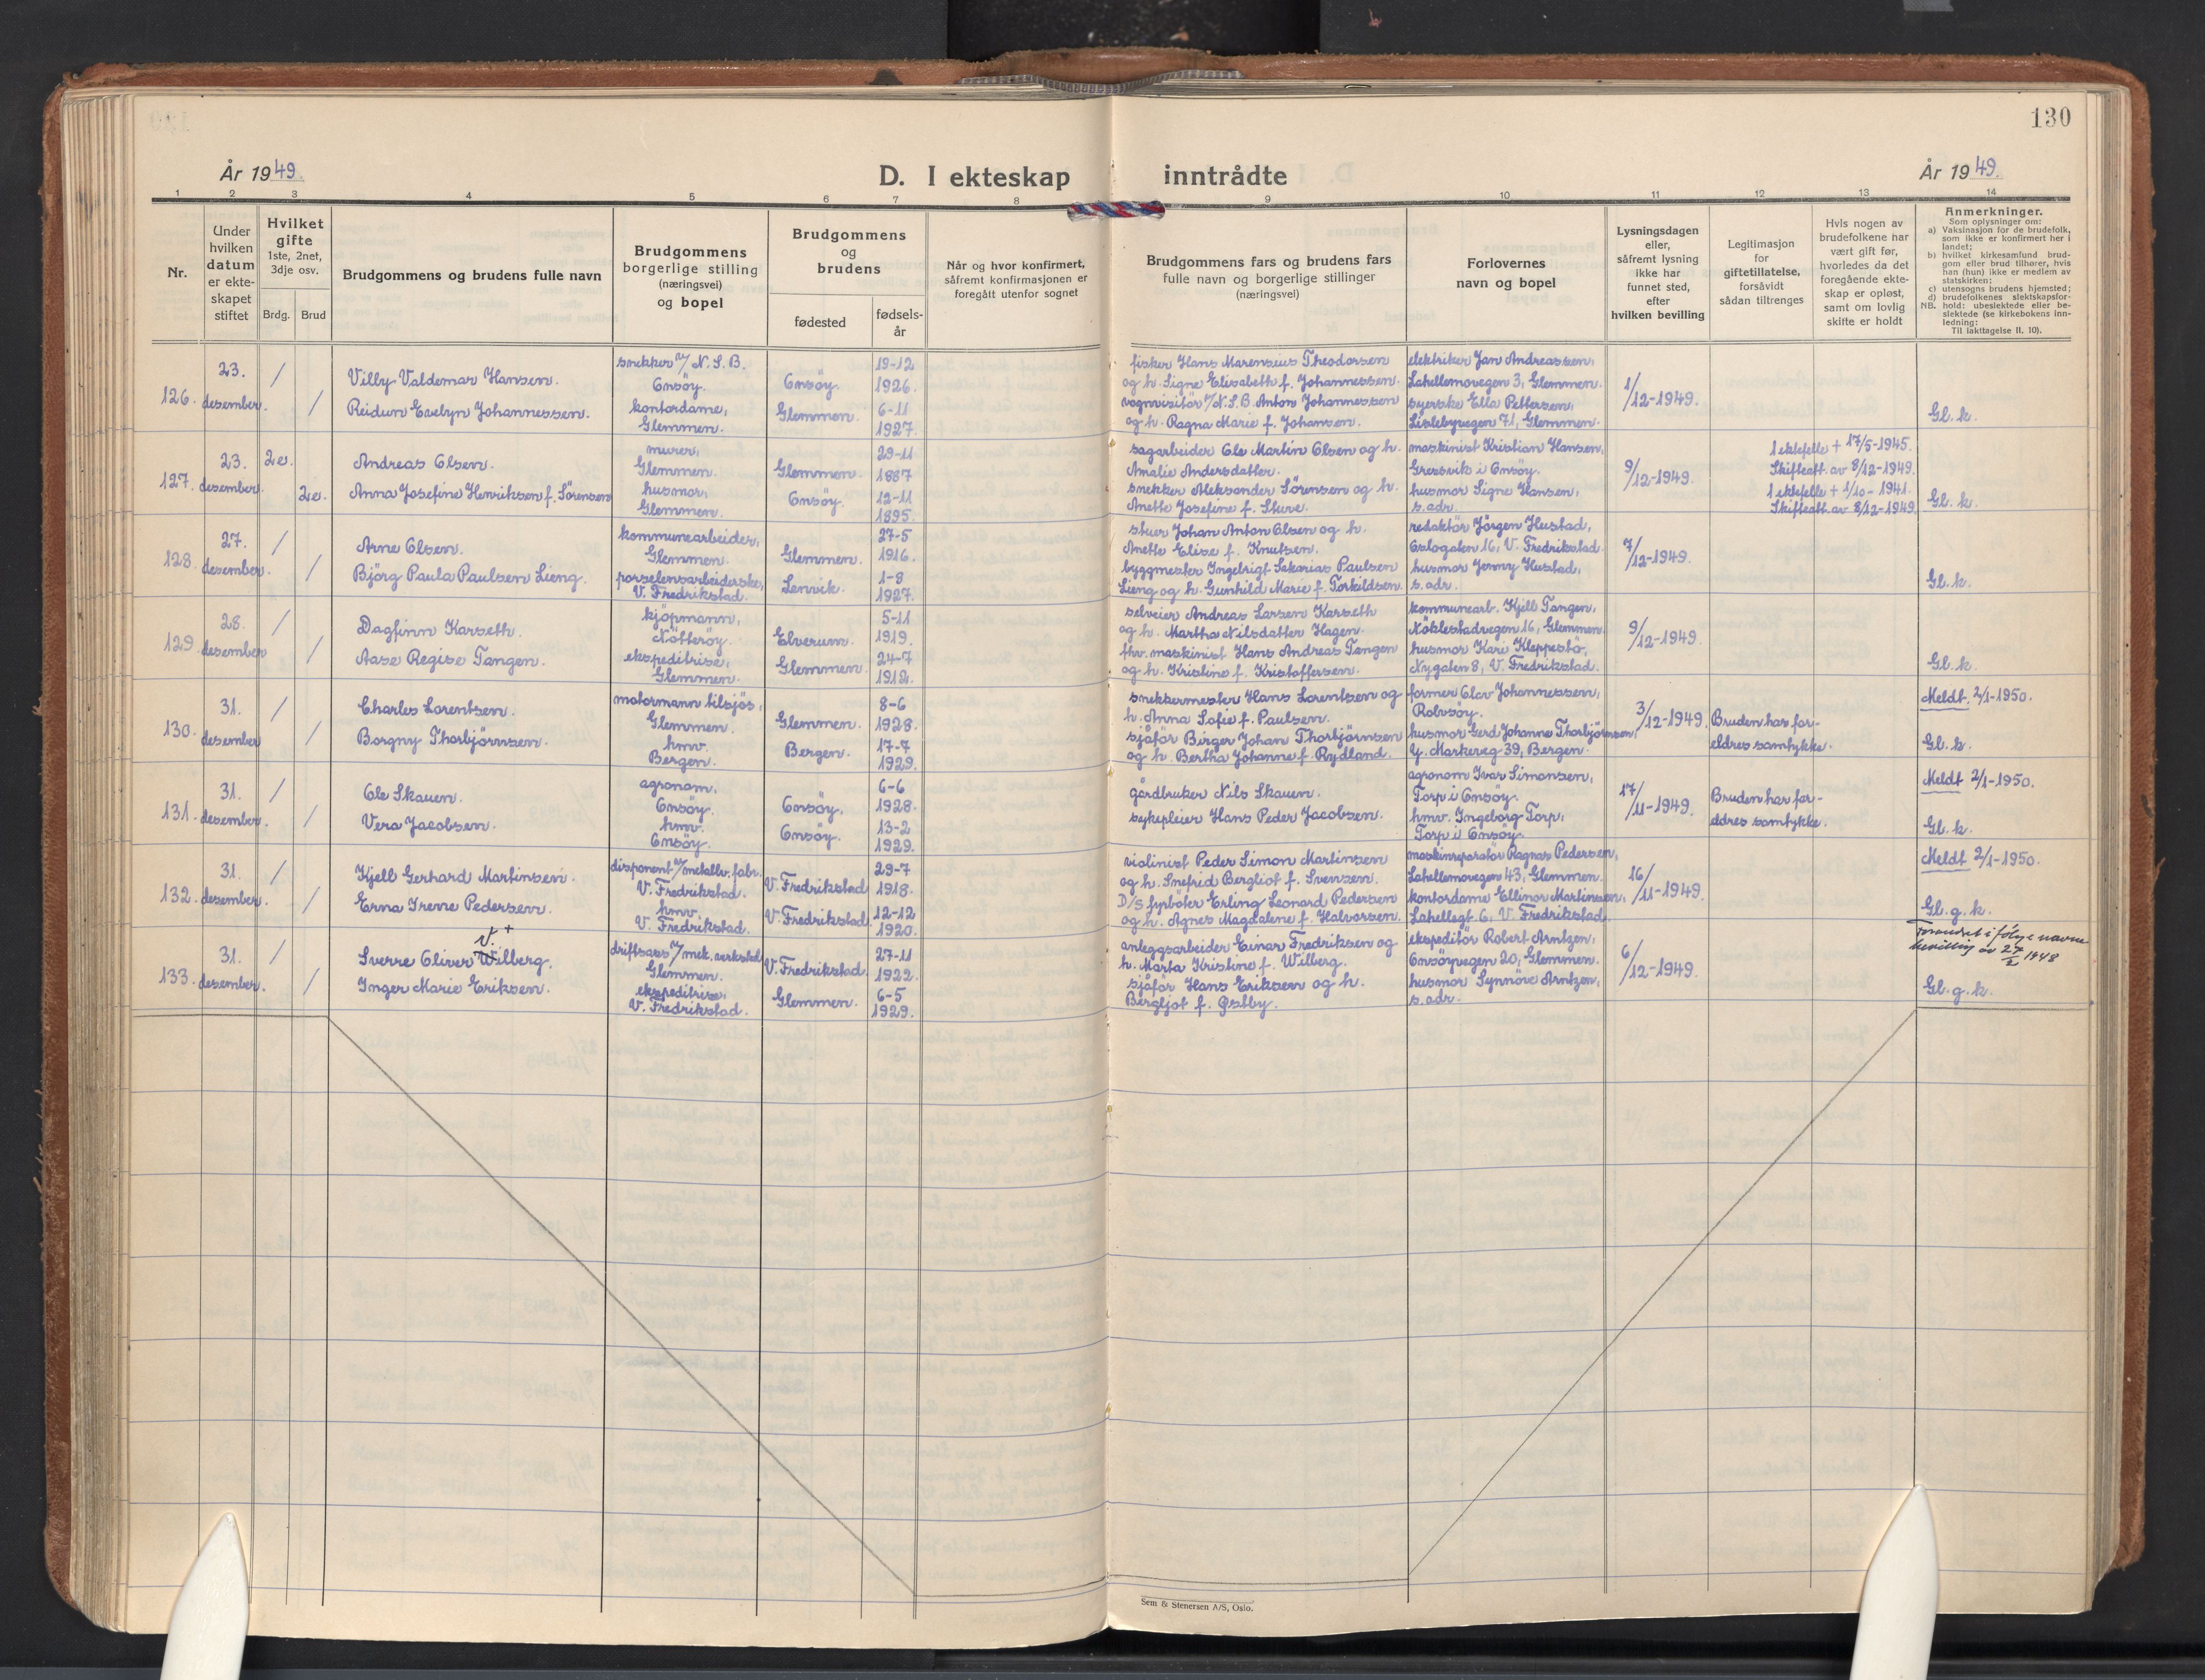 130
År 1949.
D. I ekteskap inntrådte
År 1949.
1 2 3 4 5 6 7 8 9 10 11 12 13 14
Nr.
Under hvilken datum er ekte-skapet stiftet
Hvilket gifte
1ste, 2net, 3dje osv.
Brdg. Brud
Brudgommens og brudens fulle navn
Brudgommens borgerlige stilling (næringsvei) og bopel
Brudgommens og brudens
fødested
fødsels-år
Når og hvor konfirmert, såfremt konfirmasjonen er foregått utenfor sognet
Brudgommens fars og brudens fars fulle navn og borgerlige stillinger (næringsvei)
Forlovernes navn og bopel
Lysningsdagen eller, såfremt lysning ikke har funnet sted, efter hvilken bevilling
Legitimasjon for giftetillatelse, forsåvidt sådan tiltrenges
Hvis nogen av brudefolkene har vært gift før, hvorledes da det foregående ekte-skap er opløst, samt om lovlig skifte er holdt
Anmerkninger.
Som oplysninger om:
a) Vaksinasjon for de brudefolk, som ikke er konfirmert her i landet;
b) hvilket kirkesamfund brud-gom eller brud tilhører, hvis han (hun) ikke er medlem av statskirken;
c) utensogns brudens hjemsted;
d) brudefolkenes slektskapsfor-hold: ubeslektede eller be-slektede (se kirkebokens inn-ledning:
NB. Til iakttagelse II. 10).
126. 23. desember. / /
Villy Valdemar Hansen.
Reidun Evelyn Johannessen.
snekker v/ N.S.B.
Onsöy.
kontordame,
Glemmen.
Onsöy.
Glemmen.
19-12
1926.
6-11
1927.
fisker Hans Marensius Theodorsen
og h. Signe Elisabeth f. Johannessen.
vognvisitör v/N.S.B. Anton Johannessen
og h. Ragna Marie f. Johansen.
elektriker Jan Andreassen,
Lahellemovegen 3, Glemmen.
syerske Ella Pettersen,
Lislebyvegen 71, Glemmen.
1/12-1949.
Gl. k.
127. 23. desember. 2e. 2e.
Andreas Olsen.
Anna Josefine Henriksen f. Sörensen
murer,
Glemmen.
husmor,
Glemmen.
Glemmen.
Onsöy.
29-11
1887
12-11
1895.
sagarbeider Ole Martin Olsen og h.
Amalie Andersdatter.
snekker Aleksander Sörensen og h.
Anette Josefine f. Stuve.
maskinist Kristian Hansen,
Gressvik i Onsöy.
husmor Signe Hansen,
s. adr.
9/12-1949.
1 ektefelle + 17/5-1945.
Skifteatt. av 8/12-1949.
1 ektefelle + 1/10-1941.
Skifteatt. av 8/12-1949
Gl. k.
128. 27. desember. / /
Arne Olsen.
Björg Paula Paulsen Lieng.
kommunearbeider,
Glemmen.
porselensarbeiderske,
V. Fredrikstad.
Glemmen.
Lenvik.
27-5
1916.
1-8
1927.
stuer Johan Anton Olsen og h.
Anette Elise f. Knutsen.
byggmester Ingebrigt Sakarias Paulsen
Lieng og h. Gunhild Marie f. Torkildsen.
redaktör Jörgen Hustad,
Oslogaten 16, V. Fredrikstad.
husmor Jenny Hustad,
s. adr.
7/12-1949.
Gl. k.
129. 28. desember / /
Dagfinn Karseth.
Aase Regise Tangen.
kjöpmann,
Nötteröy.
ekspeditrise,
Glemmen.
Elverum.
Glemmen.
5-11
1919.
24-7
1912.
selveier Andreas Larsen Karseth
og h. Martha Nilsdatter Hagen.
fhv. maskinist Hans Andreas Tangen
og h. Kristine f. Kristoffersen.
kommunearb. Kjell Tangen,
Nöklestadvegen 16, Glemmen.
husmor Kari Kleppestö,
Nygaten 8, V. Fredrikstad.
9/12-1949.
Gl. k.
130. 31. desember / /
Charles Lorentsen.
Borgny Thorbjörnsen.
motormann tilsjøs,
Glemmen.
hmv.
Bergen.
Glemmen.
Bergen.
8-6
1928.
17-7
1929.
snekkermester Hans Lorentsen og
h. Anna Sofie f. Paulsen.
sjåför Birger Johan Thorbjörnsen
og h. Bertha Johanne f. Rydland.
former Olav Johannessen,
Rolvsöy.
husmor Gerd Johanne Thorbjörnsen,
Y. Markeveg 39, Bergen.
3/12-1949.
Bruden har for-
eldres samtykke.
Meldt 2/1-1950.
Gl. k.
131. 31. desember. / /
Ole Skauen.
Vera Jacobsen.
agronom,
Onsöy.
hmv.
Onsöy.
Onsöy.
Onsöy.
6-6
1928.
13-2
1929.
gårdbruker Nils Skauen.
sykepleier Hans Peder Jacobsen.
agronom Ivar Simonsen,
Torp i Onsöy.
hmv. Ingeborg Torp,
Torp i Onsöy.
17/11-1949.
Bruden har for-
eldres samtykke.
Meldt 2/1-1950.
Gl. k.
132. 31. desember. / /
Kjell Gerhard Martinsen.
Erna Irene Pedersen.
disponent v/ metallv. fabr.
V. Fredrikstad.
hmv.
V. Fredrikstad.
V. Fredrikstad
V. Fredrikstad
29-7
1918.
12-12
1920.
violinist Peder Simon Martinsen
og h. Snefrid Bergliot f. Svensen.
D/S fyrböter Erling Leonard Pedersen
og h. Agnes Magdalene f. Halvorsen.
maskinreparatör Ragnar Pedersen,
Lahellemovegen 43, Glemmen.
kontordame Ellinor Martinsen,
Lahellegt. 6, V. Fredrikstad.
16/11-1949.
Meldt 2/1-1950.
Gl. g. k.
133. 31. desember. / /
V. +
Sverre Oliver Wilberg.
Inger Marie Eriksen.
driftsass v/ mek. verksted
Glemmen.
ekspeditrise,
V. Fredrikstad.
V. Fredrikstad
Glemmen.
27-11
1922.
6-5
1929.
anleggsarbeider Einar Fredriksen og
h. Marta Kristine f. Wilberg.
sjåför Hans Eriksen og h.
Bergljot f. Østby.
ekspeditör Robert Arntzen,
Onsöyvegen 20, Glemmen.
husmor Synnöve Arntzen,
s. adr.
6/12-1949.
+ Forandret i følge navne
bevilling av 27/2 1948
Gl. g. k.
Sem & Stenersen A/S, Oslo.